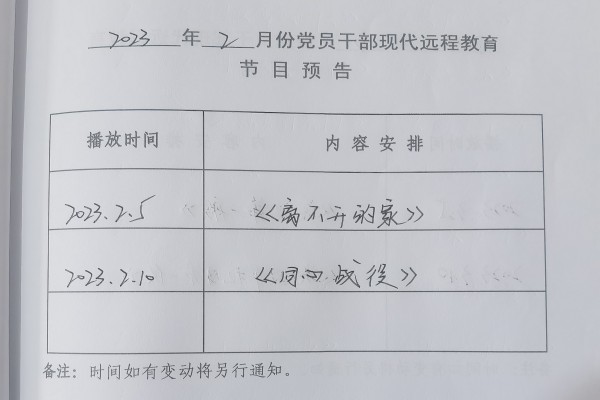 2023 年 2 月份党员干部现代远程教育
节目预告
播放时间 内容安排
2023.2.5 《离不开的家》
2023.2.10 《同心战役》
备注：时间如有变动将另行通知。